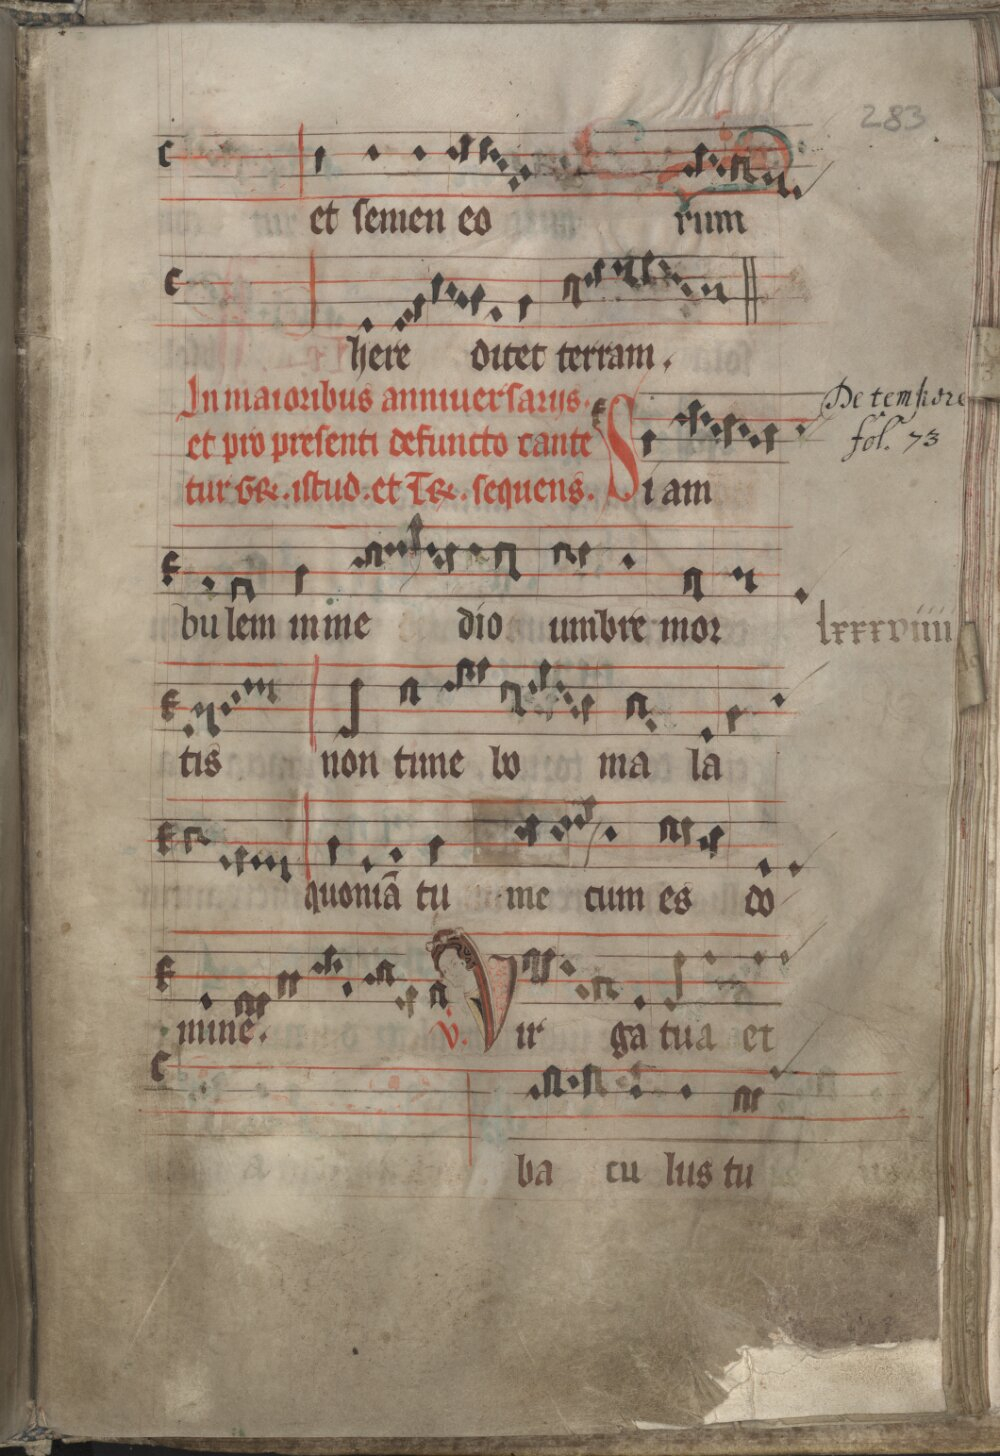 283
et semen eo rum
here ditet terram.
In maioribus anniuersarijs.
et pro presenti defuncto cante
tur GR. istud. et TR. sequens. Si am
De tempore
fol. 73
bu lem in me dio umbre mor
lxxxviiii
tis non time bo ma la
quoniā tu me cum es do
mine. V. Vir ga tua et
ba cu lus tu